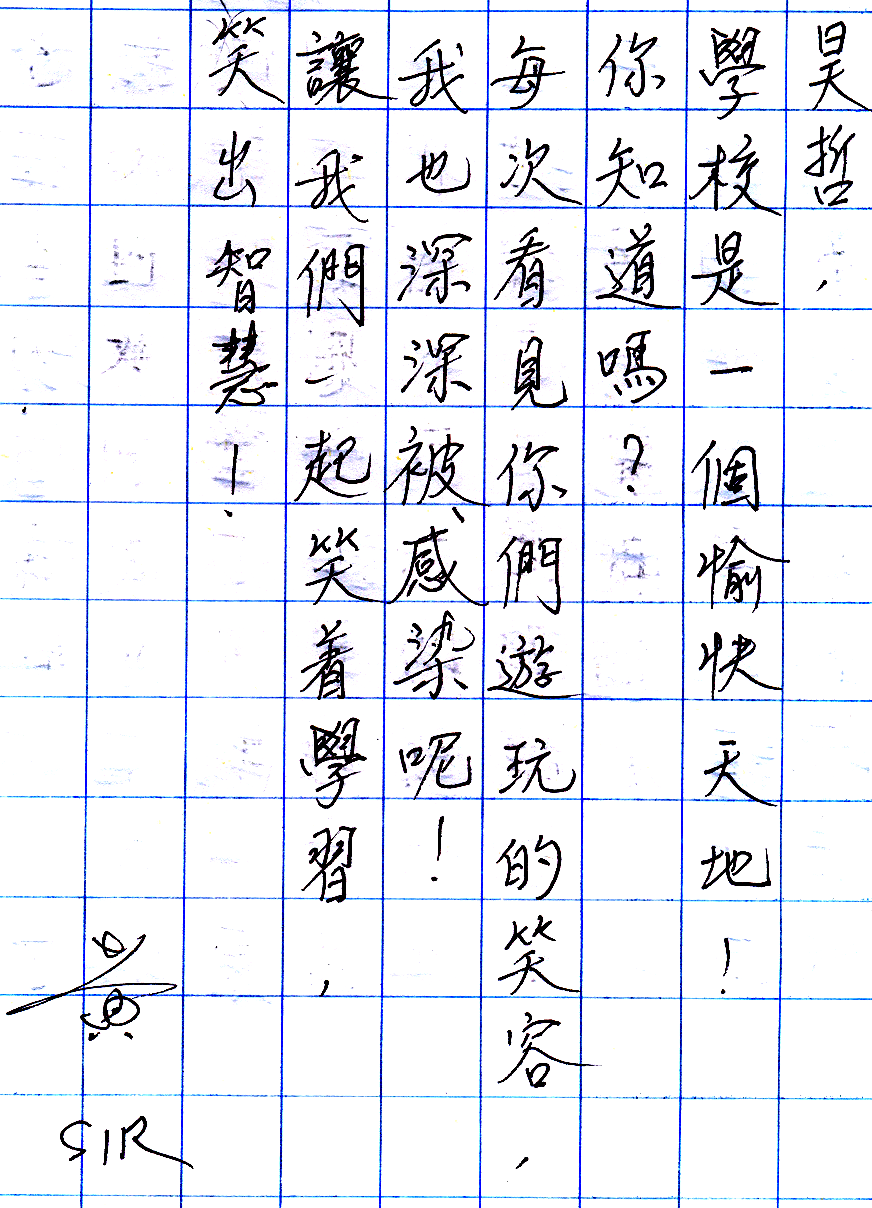 昊哲，
學校是一個愉快天地！
你知道嗎？
每次看見你們遊玩的笑容，
我也深深被感染呢！
讓我們一起笑着學習，
笑出智慧！
黃
SIR